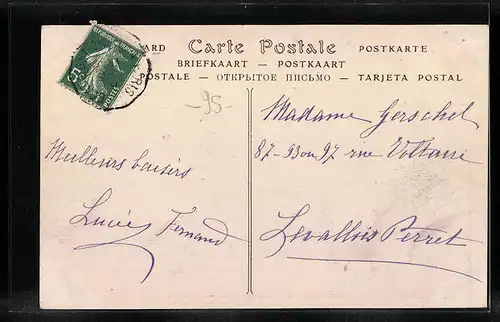 ARD Carte Postale POSTKARTE
BRIEFKAART — POSTKAART
POSTALE — ОТКРЫТОЕ ПИСЬМО — TARJETA POSTAL
REPUBLIQUE FRANÇAISE
5c
RIS
-95-
Madame Gerschel
87-93 ou 97 rue Voltaire
Levallois Perret
Meilleurs baisers
Lucie Fernand